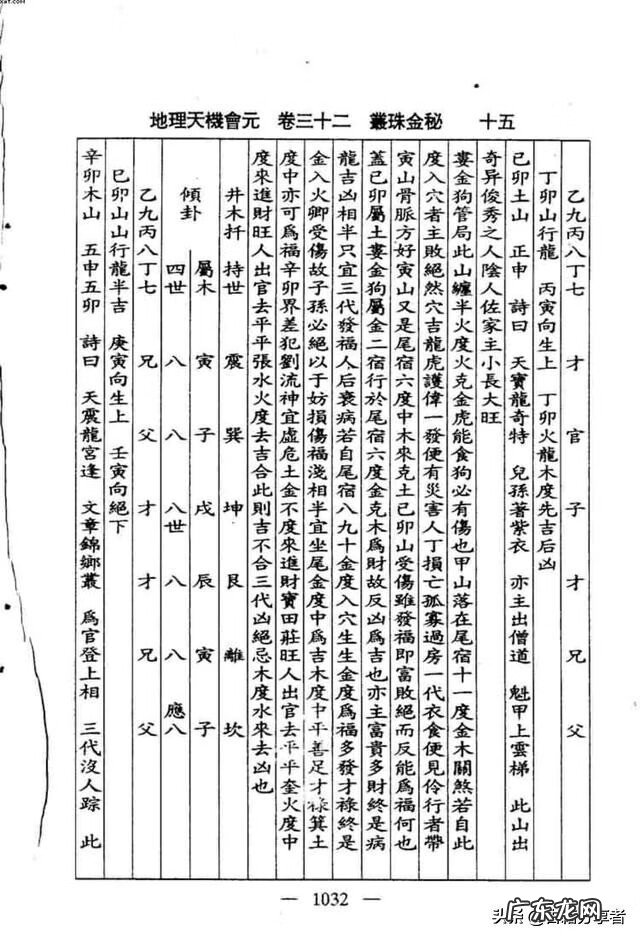 xat.com
地理天機會元　卷三十二　叢珠金秘　十五
乙九丙八丁七　才　官　子　才　兄　父
丁卯山行龍　丙寅向生上　丁卯火龍木度先吉后凶
己卯土山　正申　詩曰　天寶龍奇特　兒孫著紫衣　亦主出僧道　魁甲上雲梯　此山出
奇异俊秀之人陰人佐家主小長大旺
婁金狗管局此山纏半火度火克金虎能食狗必有傷也甲山落在尾宿十一度金木關煞若自此
度入穴者主敗絕然穴吉龍虎護偉一發便有災害人丁損亡孤寡過房一代衣食便見伶行者帶
寅山骨脈方好寅山又是尾宿六度中木來克土己卯山受傷雖發福即富敗絕而反能為福何也
蓋己卯屬土婁金狗屬金二宿行於尾宿六度金克木為財故反凶為吉也亦主富貴多財終是病
龍吉凶相半只宜三代發福人后衰病若自尾宿八九十金度入穴生生金度為福多發才祿終是
金入火鄉受傷故子孫必絕以于妨損傷福淺相半宜坐尾金度中為吉木度中平善足才祿箕土
度中亦可為福辛卯界差犯劉流神宜虛危土金不度來進財寶田莊旺人出官去平平奎火度中
度來進財旺人出官去平平張水火度去吉合此則吉不合三代凶絕忌木度水來去凶也
井木扞　持世　震　巽　坤　艮　離　坎
屬木　寅　子　戌　辰　寅　子
傾卦　四世　八　八　八世　八　八　應八
乙九丙八丁七　兄　父　才　才　兄　父
巳卯山山行龍半吉　庚寅向生上　壬寅向絕下
辛卯木山　五申五卯　詩曰　天震龍宮逢　文章錦鄉叢　為官登上相　三代沒人踪　此
— 1032 —
头条
享者
广东龙网